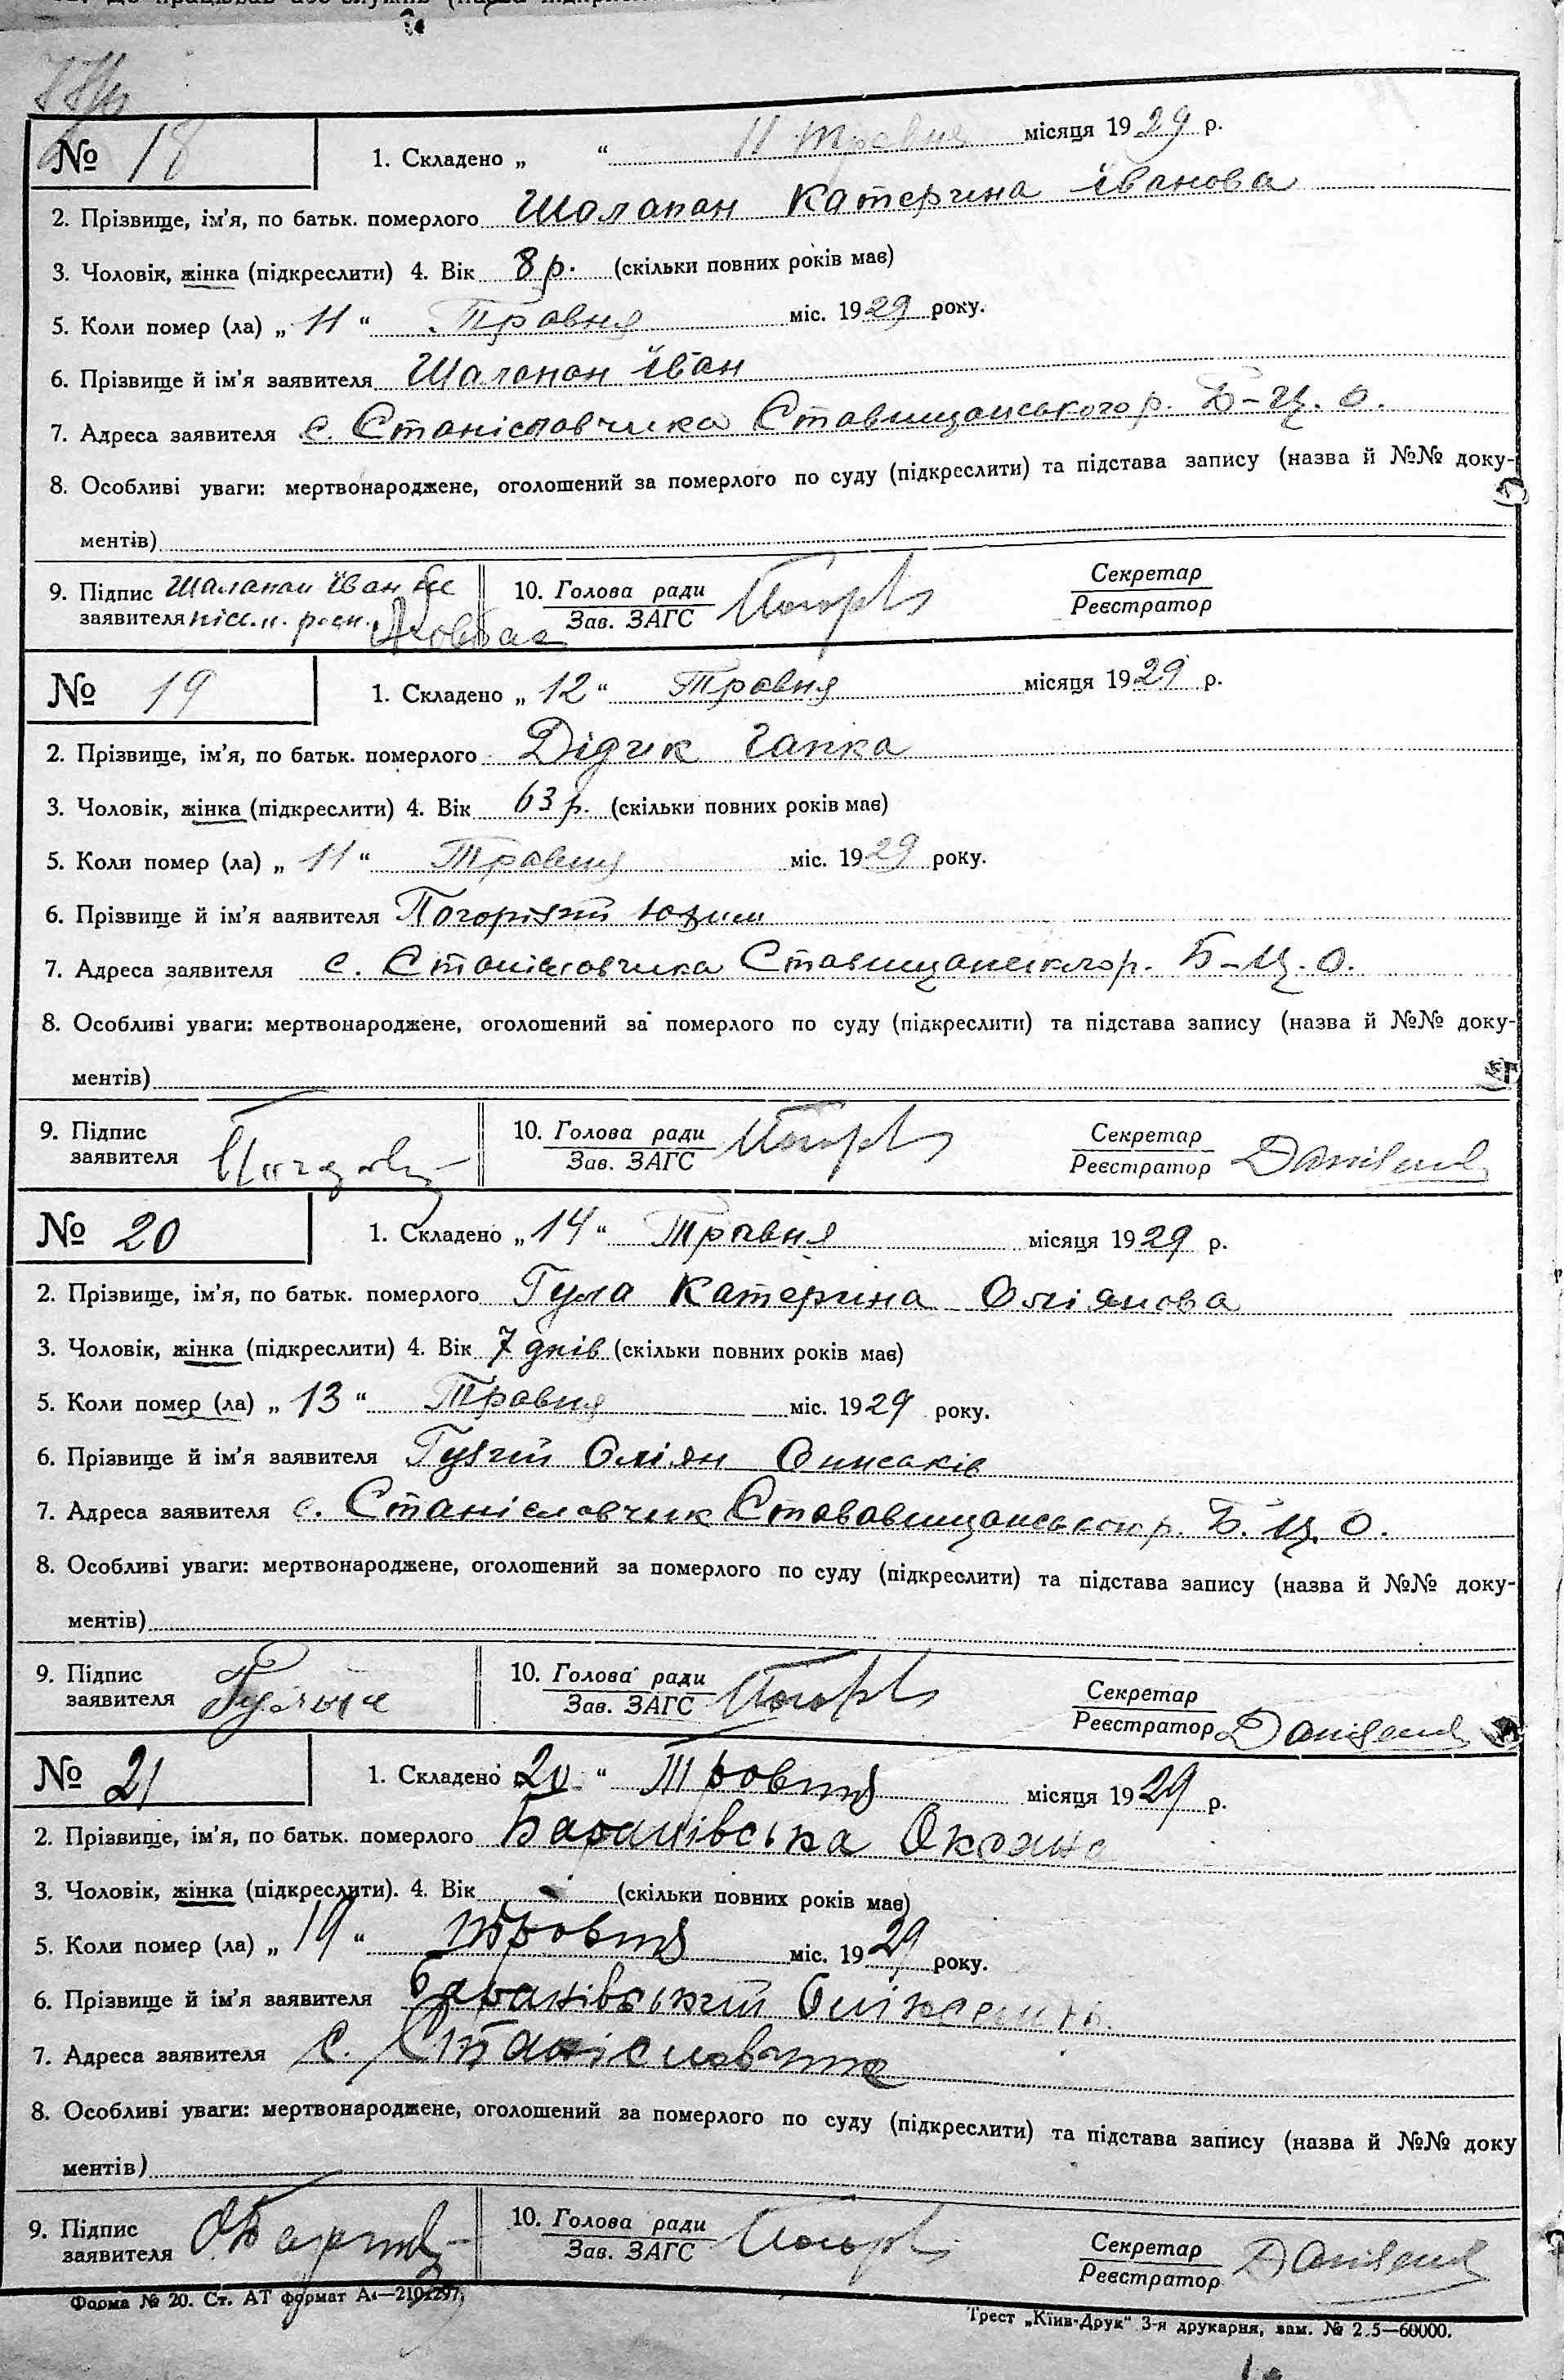 № 18
1. Складено „ “ 11 травня місяця 1929 р.
2. Прізвище, ім'я, по батьк. померлого Шалапан Катерина Іванова
3. Чоловік, жінка (підкреслити) 4. Вік 8 р. (скільки повних років має)
5. Коли помер (ла) „ 11 “ Травня міс. 1929 року.
6. Прізвище й ім'я заявителя Шалапан Іван
7. Адреса заявителя с. Станіславчика Ставищанського р. Б-Ц. о.
8. Особливі уваги: мертвонароджене, оголошений за померлого по суду (підкреслити) та підстава запису (назва й №№ доку-
ментів)
9. Підпис Шалапан Іван
заявителя
10. Голова ради
Зав. ЗАГС
Секретар
Реєстратор
№ 19
1. Складено „ 12 “ Травня місяця 1929 р.
2. Прізвище, ім'я, по батьк. померлого Дідик Гапка
3. Чоловік, жінка (підкреслити) 4. Вік 63 р. (скільки повних років має)
5. Коли помер (ла) „ 11 “ Травня міс. 1929 року.
6. Прізвище й ім'я заявителя
7. Адреса заявителя с. Станіславчика Ставищанського р. Б-Ц. о.
8. Особливі уваги: мертвонароджене, оголошений за померлого по суду (підкреслити) та підстава запису (назва й №№ доку-
ментів)
9. Підпис
заявителя
10. Голова ради
Зав. ЗАГС
Секретар
Реєстратор
№ 20
1. Складено „ 14 “ Травня місяця 1929 р.
2. Прізвище, ім'я, по батьк. померлого Гула Катерина Оліянова
3. Чоловік, жінка (підкреслити) 4. Вік 7 днів (скільки повних років має)
5. Коли помер (ла) „ 13 “ Травня міс. 1929 року.
6. Прізвище й ім'я заявителя Оліян
7. Адреса заявителя с. Станіславчик Б. Ц. О.
8. Особливі уваги: мертвонароджене, оголошений за померлого по суду (підкреслити) та підстава запису (назва й №№ доку-
ментів)
9. Підпис
заявителя
10. Голова ради
Зав. ЗАГС
Секретар
Реєстратор
№ 21
1. Складено 20 “ Травня місяця 1929 р.
2. Прізвище, ім'я, по батьк. померлого Баранівська Оксана
3. Чоловік, жінка (підкреслити). 4. Вік (скільки повних років має)
5. Коли помер (ла) „ 19 “ травня міс. 1929 року.
6. Прізвище й ім'я заявителя Баранівський
7. Адреса заявителя с. Станіславчика
8. Особливі уваги: мертвонароджене, оголошений за померлого по суду (підкреслити) та підстава запису (назва й №№ доку
ментів)
9. Підпис
заявителя
10. Голова ради
Зав. ЗАГС
Секретар
Реєстратор
Форма № 20. Ст. АТ формат А₄—210x297,
Трест „Київ-Друк“ 3-я друкарня, зам. № 2.5—60000.